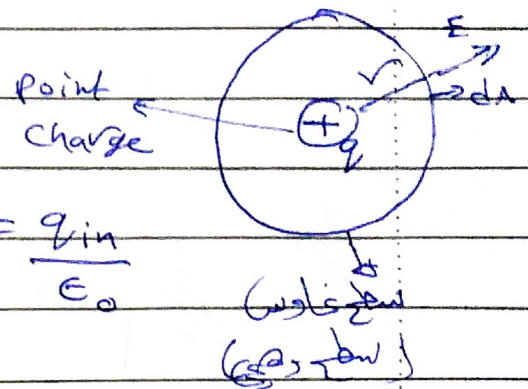 E
point
charge
+
q
dA
= q in / ε₀
سطح غاوس
(سطح وهمي)